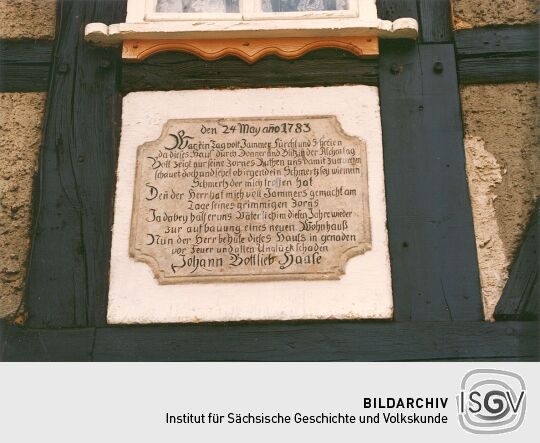 den 24 May año 1783
War ein Tag voll Jammer Furcht und Schrecken
da dieses Hauß durch Donner und Blitz in der Asche lag
Gott zeigt nur seine Zornes Ruthen uns damit zu
schauet doch und sehet ob irgend ein Schmertz sey wie mein
Schmertz der mich troffen hat
Den der Herr hat mich voll Jammers gemacht am
Tage seines grimmigen Zorns
Ja dabey halff er uns Väterlich im diesen Jahre wieder
zur auf bauung eines neuen Wohnhauß
Nun der Herr behüte dieses Hauß in genaden
vor Feuer und allen Unglück schaden
Johann Gottlieb Haase
BILDARCHIV
Institut für Sächsische Geschichte und Volkskunde
ISGV